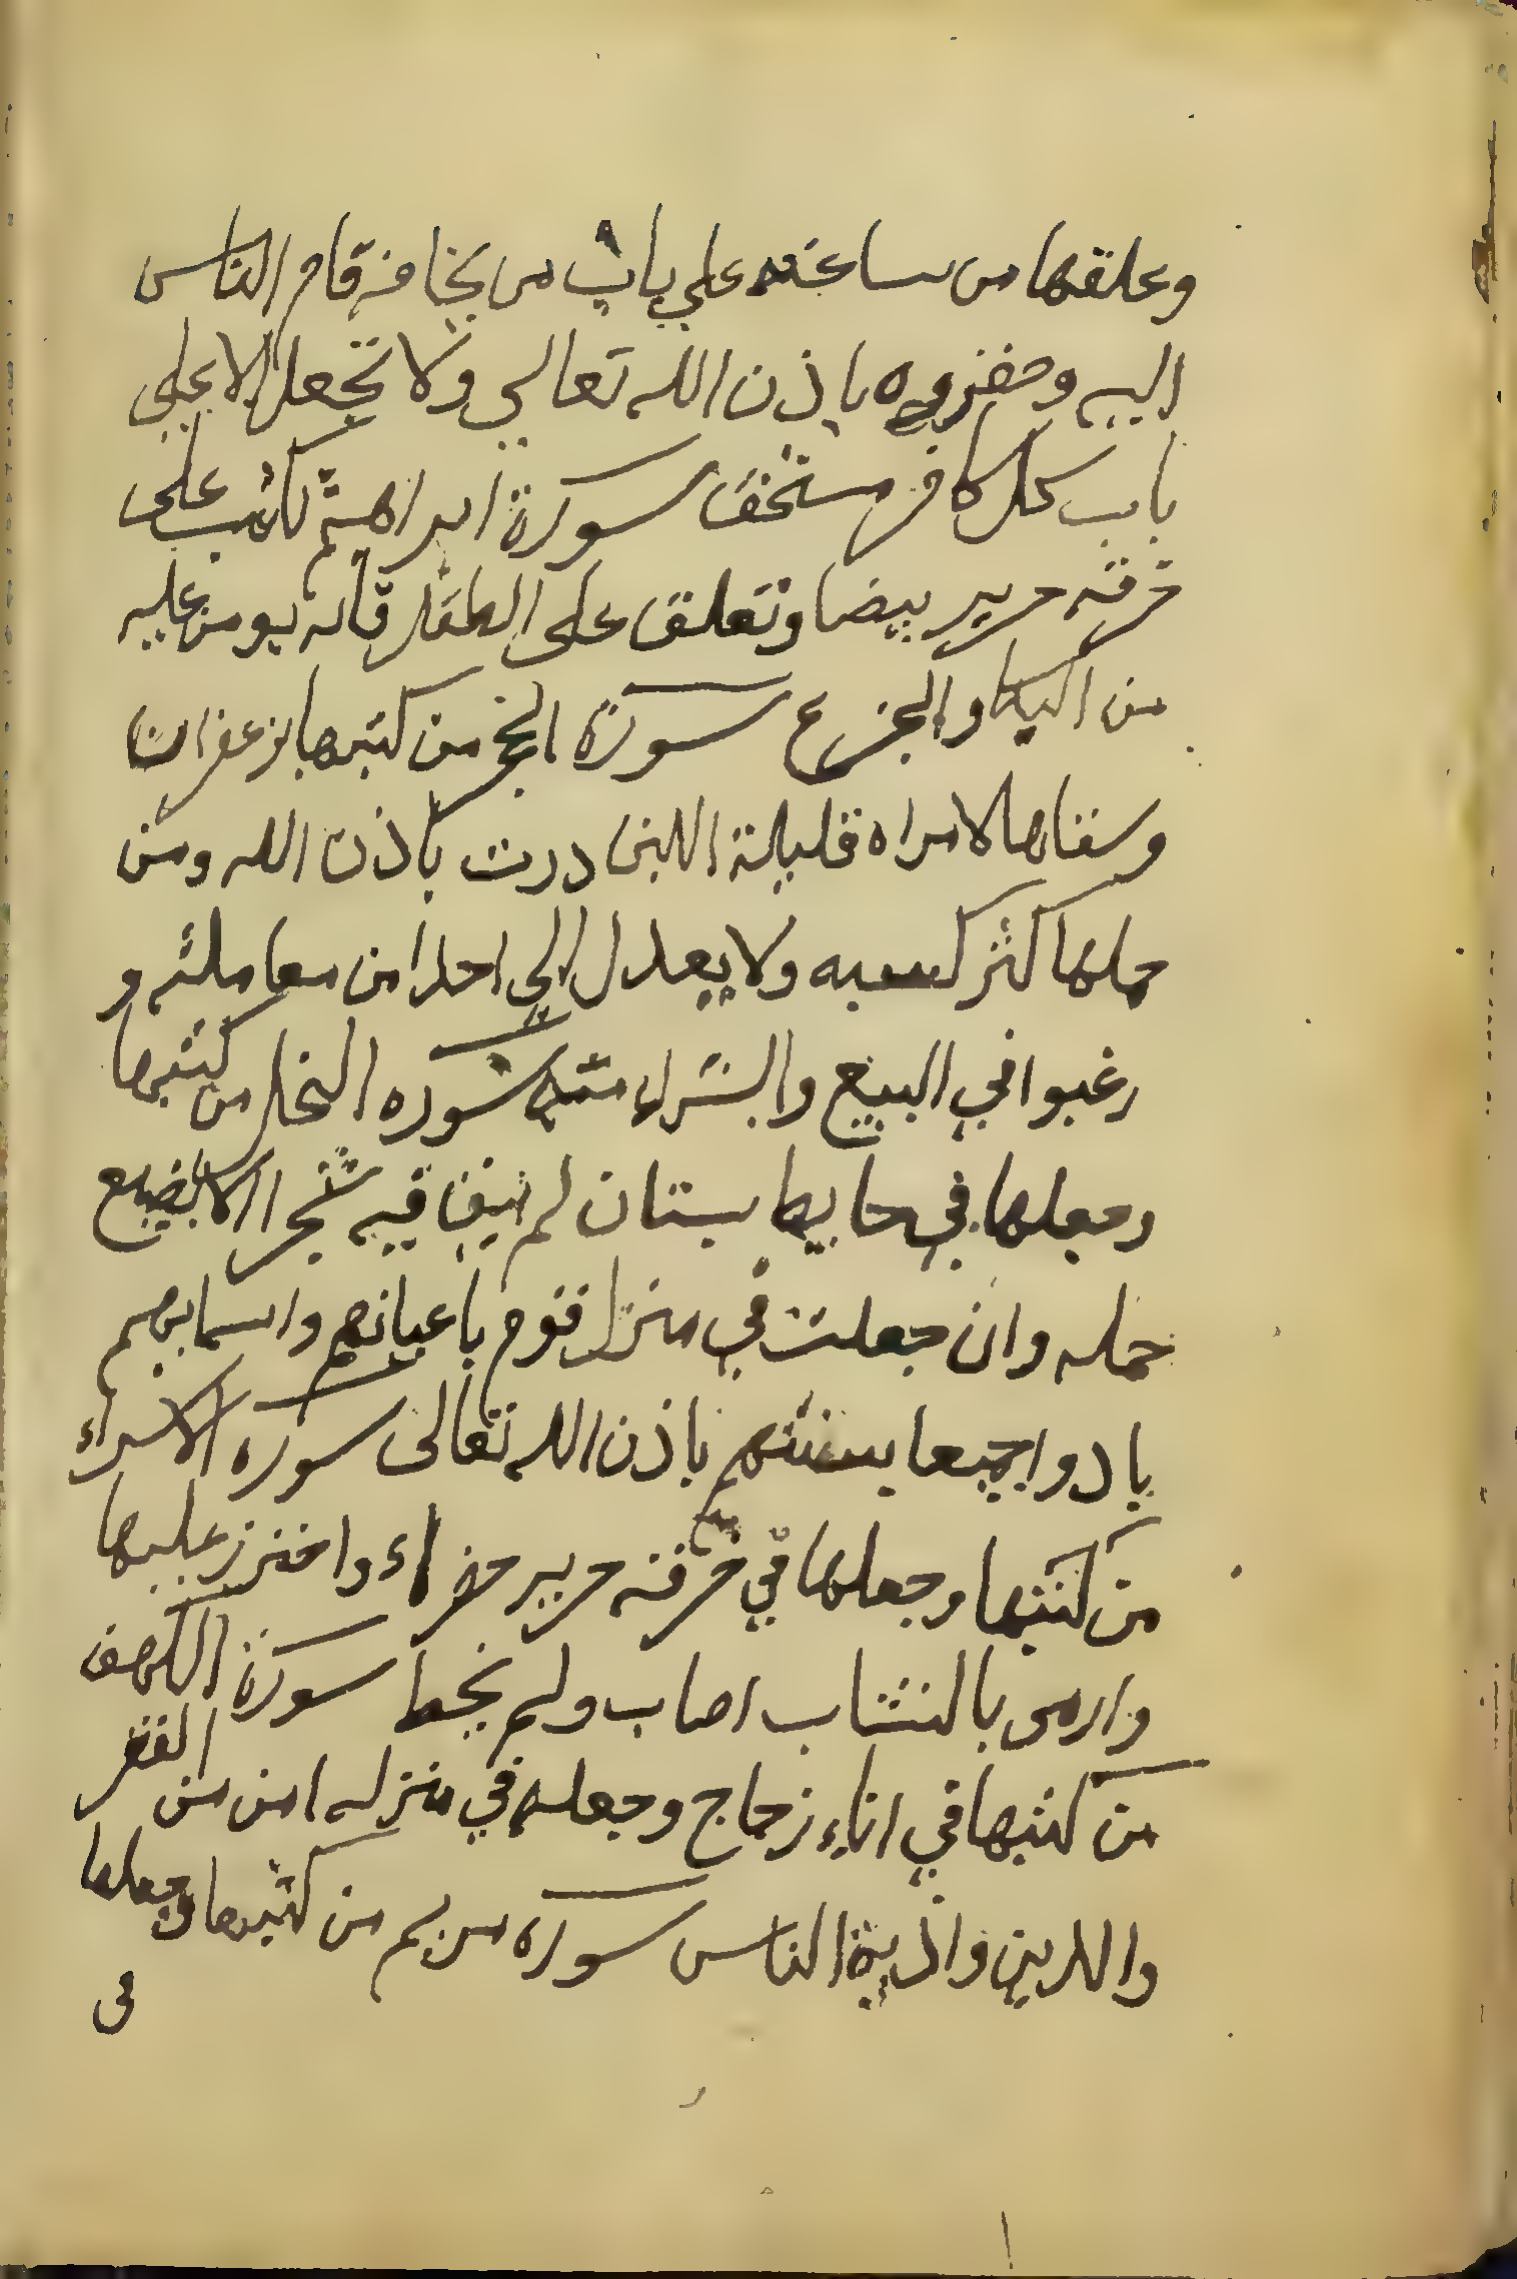 وعلقها من ساعته علي باب من يخافه قام الناس
اليه وحفزوه باذن الله تعالي ولا تجعل الا علي
باب كل كافر مستخف سورة ابراهيم تكتب على
خرقه حرير بيضا وتعلق على الطفل فانه يومن عليه
من البكا والجزع سورة الحجر من كتبها بزعفران
وسقاها لامراه قليلة اللبن درت باذن الله ومن
حملها كثر كسبه ولا يعدل الي احدا من معاملته و
رغبوا في البيع والشرا منه سوره النحل من كتبها
وجعلها في حايط بستان لم يبق فيه شجرا الا يضيع
حمله وان جعلت في منزل قوم باعيانهم واسمايهم
بادوا جميعا بسنتهم باذن الله تعالى سوره الاسراء
من كتبها وجعلها في خرقه حرير خضراء واخترز عليها
وارمى بالنشاب اصاب ولم يخط سورة الكهف
من كتبها في اناء زجاج وجعله في منزله امن من الفقر
والدين واذية الناس سورة مريم من كتبها وجعلها
فى